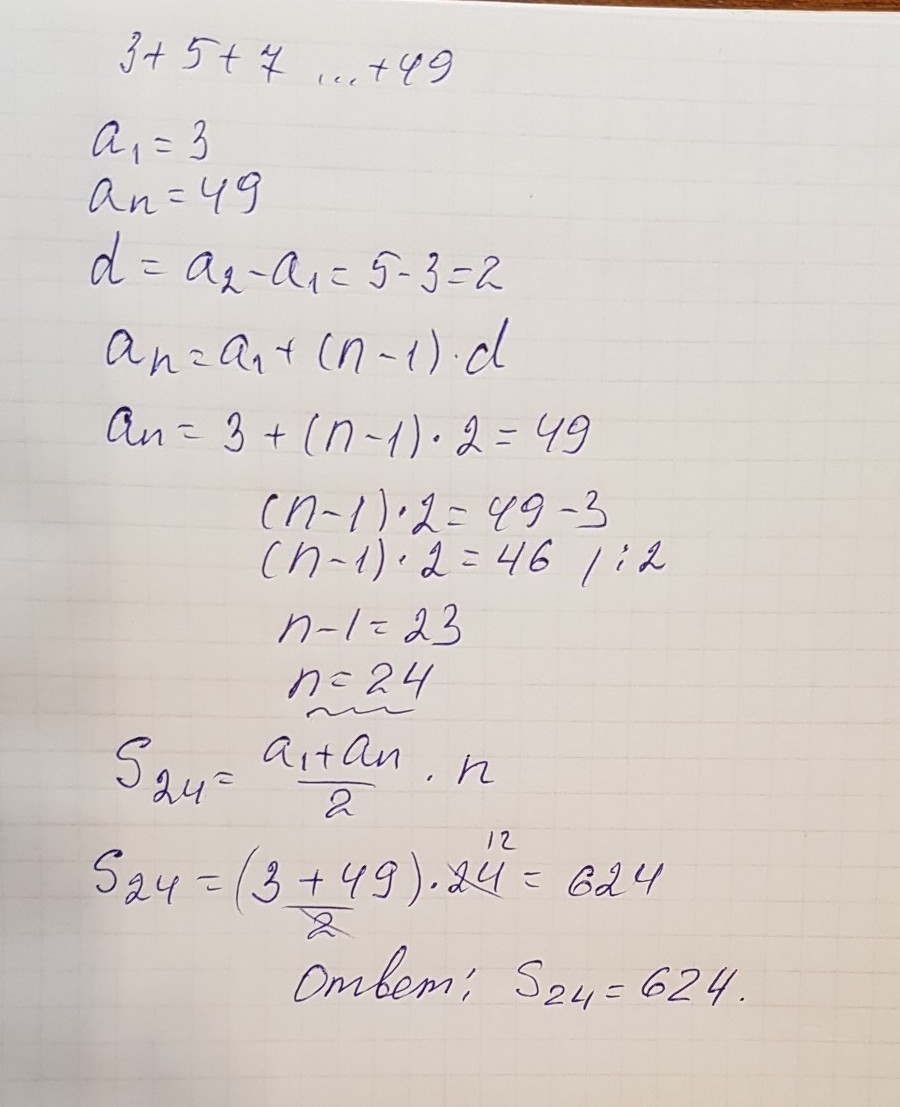 3+5+7 ...+49
a₁=3
aₙ=49
d=a₂-a₁=5-3=2
aₙ=a₁+(n-1)·d
aₙ=3+(n-1)·2=49
(n-1)·2=49-3
(n-1)·2=46 /:2
n-1=23
n=24
S₂₄=(a₁+aₙ)/2·n
12
S₂₄=(3+49)/2·24=624
Ответ: S₂₄=624.